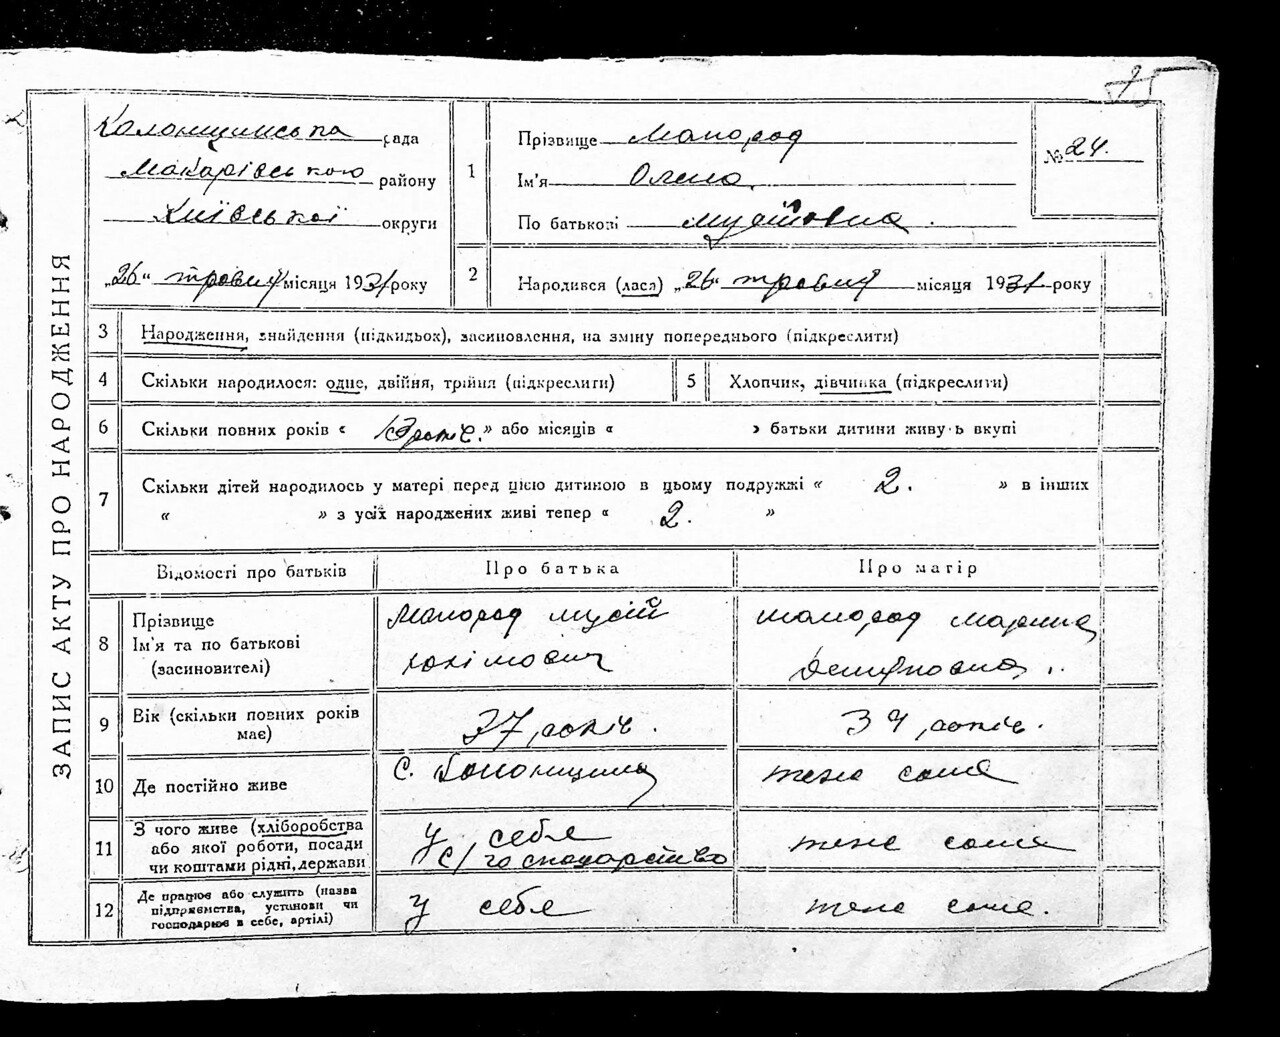 25
ЗАПИС АКТУ ПРО НАРОДЖЕННЯ
Колонщинська рада
Макарівського району
Київської округи
„26“ травня місяця 1931 року
1
Прізвище
Ім'я Олена
По батькові Мусійовна
№ 24.
2
Народився (лася) „26“ травня місяця 1931 року
3 Народження, знайдення (підкидьох), засиновлення, на зміну попереднього (підкреслити)
4 Скільки народилося: одне, двійня, трійня (підкреслити)
5 Хлопчик, дівчинка (підкреслити)
6 Скільки повних років « років » або місяців « » батьки дитини живуть вкупі
7 Скільки дітей народилось у матері перед цією дитиною в цьому подружжі « 2. » в інших
« » з усіх народжених живі тепер « 2. »
Відомості про батьків Про батька Про матір
8 Прізвище
Ім'я та по батькові
(засиновителі)
Мусій
Марина
9 Вік (скільки повних років має)
37 років.
34 років.
10 Де постійно живе
с. Колонщина
теж саме
11 З чого живе (хліборобства
або якої роботи, посади
чи коштами рідні, держави
у себе
с/господарство
теж саме
12 Де працює або служить (назва
підприємства, установи чи
господарює в себе, артілі)
у себе
теж саме.